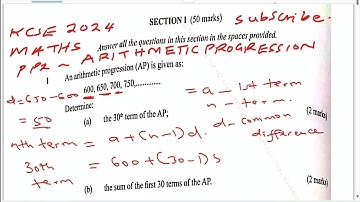 KCSE 2024
SECTION I (50 marks)
subscribe.
MATHS
Answer all the questions in this section in the spaces provided.
PP2 ~ ARITHMETIC PROGRESSION
1 An arithmetic progression (AP) is given as:
d=650-600 600, 650, 700, 750,............
= a - 1st term
= 50
Determine:
n - term.
(a) the 30th term of the AP; (2 marks)
nth term = a+(n-1)d. d- common difference
30th term = 600+(30-1)5
(b) the sum of the first 30 terms of the AP. (2 marks)